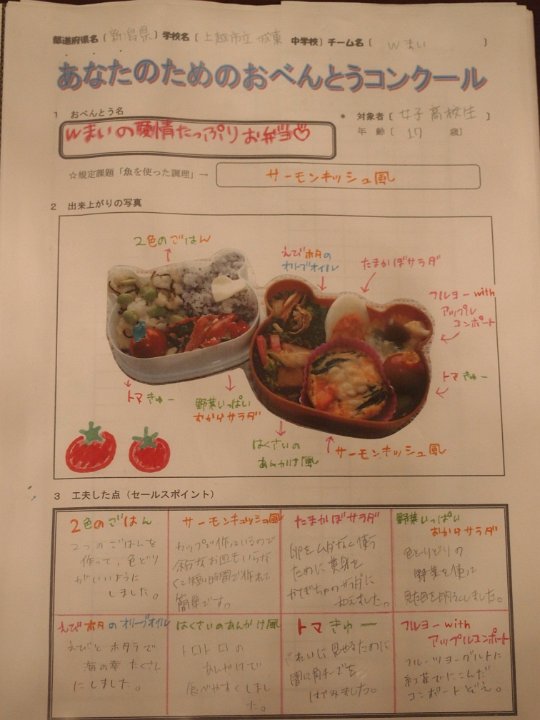 都道府県名（新潟県）学校名（上越市立 城東 中学校）チーム名（ wまい ）
あなたのためのおべんとうコンクール
1 おべんとう名
● 対象者〔 女子高校生 〕
年 齢〔 17 歳〕
wまいの愛情たっぷりお弁当♡
☆規定課題「魚を使った調理」→ サーモンキッシュ風
2 出来上がりの写真
2色のごはん
えびホタの
オリーブオイル
たまかぼサラダ
フルヨーwith
アップル
コンポート
トマきゅー
トマきゅー
野菜いっぱい
おかかサラダ
はくさいの
あんかけ風
サーモンキッシュ風
3 工夫した点（セールスポイント）
2色のごはん
2つのごはんを
作って、色どり
がいいように
しました。
サーモンキッシュ風
カップで作っているので
余分なお皿もいらが
く短時間で作れて
簡単です。
たまかぼサラダ
卵をムダなく使う
ために黄身を
かぼちゃのサラダに
和えました。
野菜いっぱい
おかかサラダ
色とりどりの
野菜を使って
えびホタのオリーブオイル
えびとホタテで
海の幸たくさん
にしました。
はくさいのあんかけ風
トロトロの
あんかけで
食べやすくしまし
た。
トマきゅー
きれいに見せるために
間に角チーズを
はさみました。
フルヨーwith
アップルコンポート
フルーツヨーグルトに
紅茶でにこんだ
コンポートどえ。